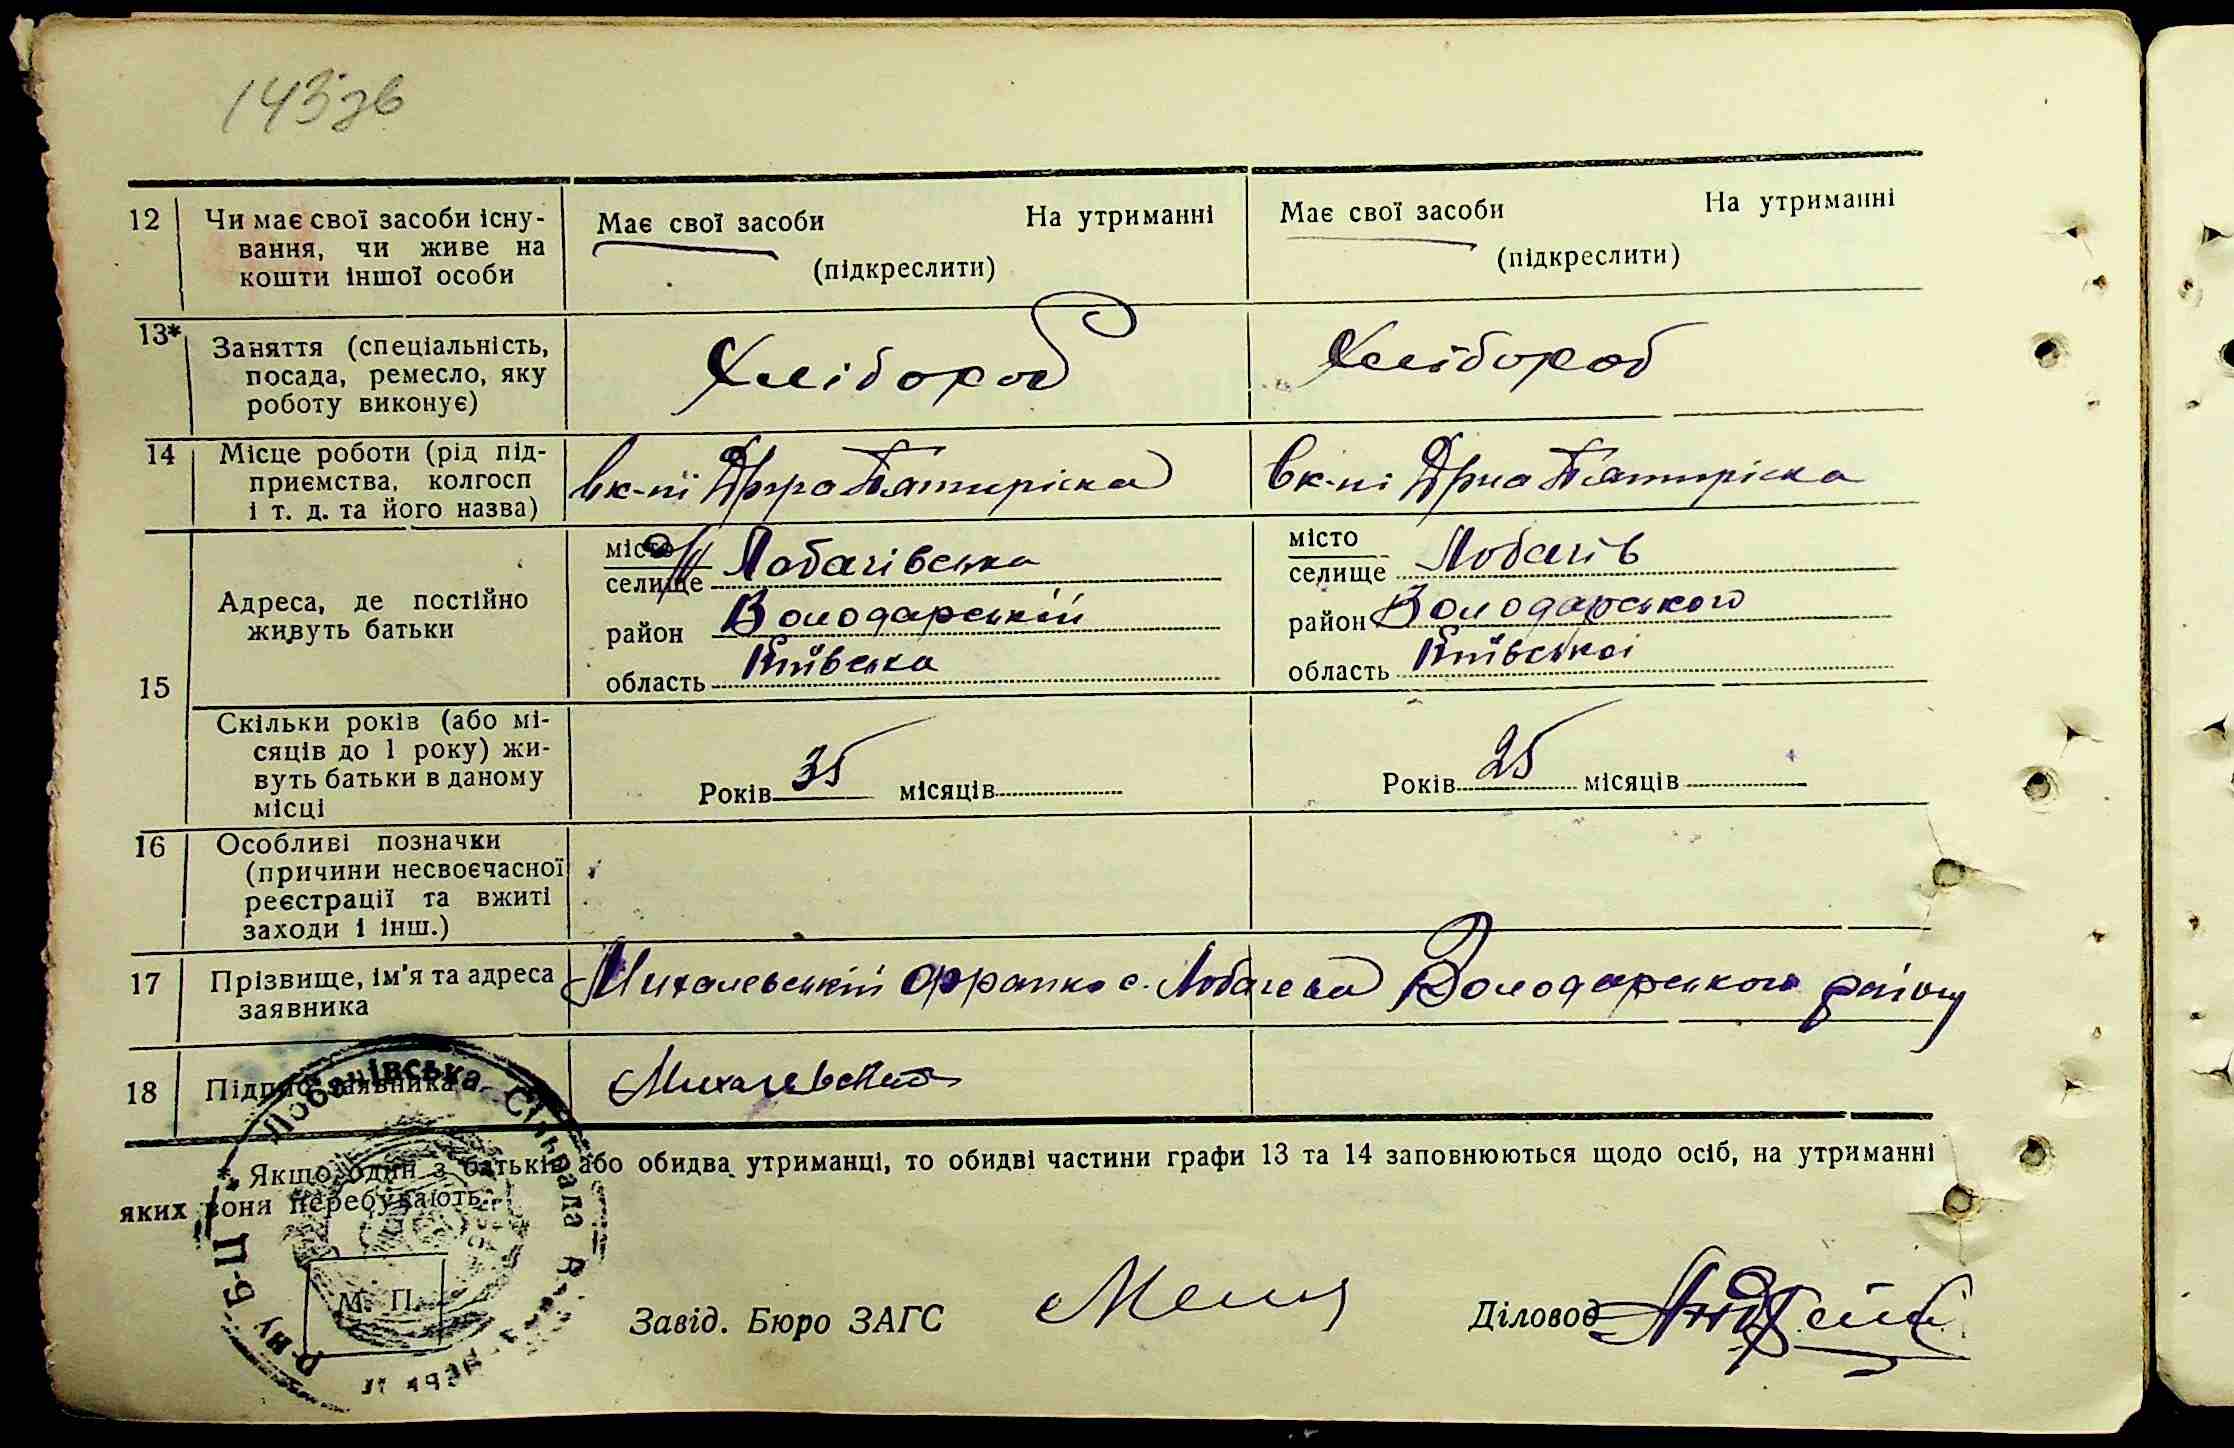 143зв
12 Чи має свої засоби існу-
вання, чи живе на
кошти іншої особи
Має свої засоби На утриманні
(підкреслити)
Має свої засоби На утриманні
(підкреслити)
13* Заняття (спеціальність,
посада, ремесло, яку
роботу виконує)
Хлібороб
Хлібороб
14 Місце роботи (рід під-
приємства, колгосп
і т. д. та його назва)
в к-пі Друга Пятирічка
в к-пі Друга Пятирічка
15 Адреса, де постійно
живуть батьки
місто
селище Лобачівська
район Володарський
область Київська
місто
селище Лобачів
район Володарського
область Київської
Скільки років (або мі-
сяців до 1 року) жи-
вуть батьки в даному
місці
Років 35 місяців
Років 25 місяців
16 Особливі позначки
(причини несвоєчасної
реєстрації та вжиті
заходи і інш.)
17 Прізвище, ім'я та адреса
заявника
Михалевський Франко с. Лобачева Володарського району
18 Підпис заявника
* Якщо один з батьків або обидва утриманці, то обидві частини графи 13 та 14 заповнюються щодо осіб, на утриманні
яких вони перебувають.
Лобачівська Сільрада
Р-ну Б-Ц
М. П.
Завід. Бюро ЗАГС
Діловод